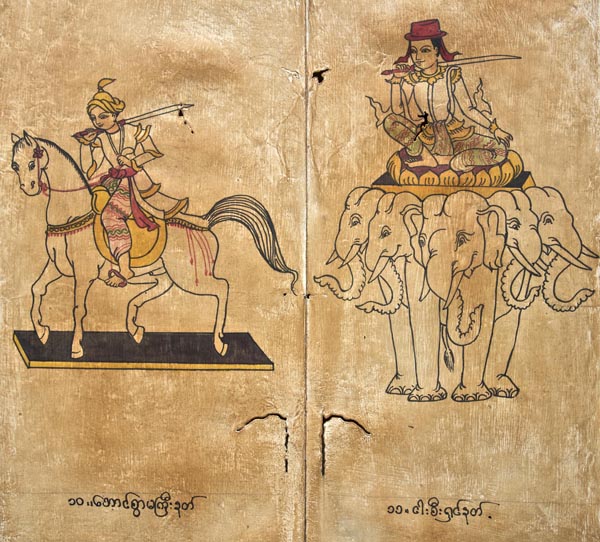 ၁၀။အောင်စွာမကြီးနတ်
၁၁။ငါးစီးရှင်နတ်